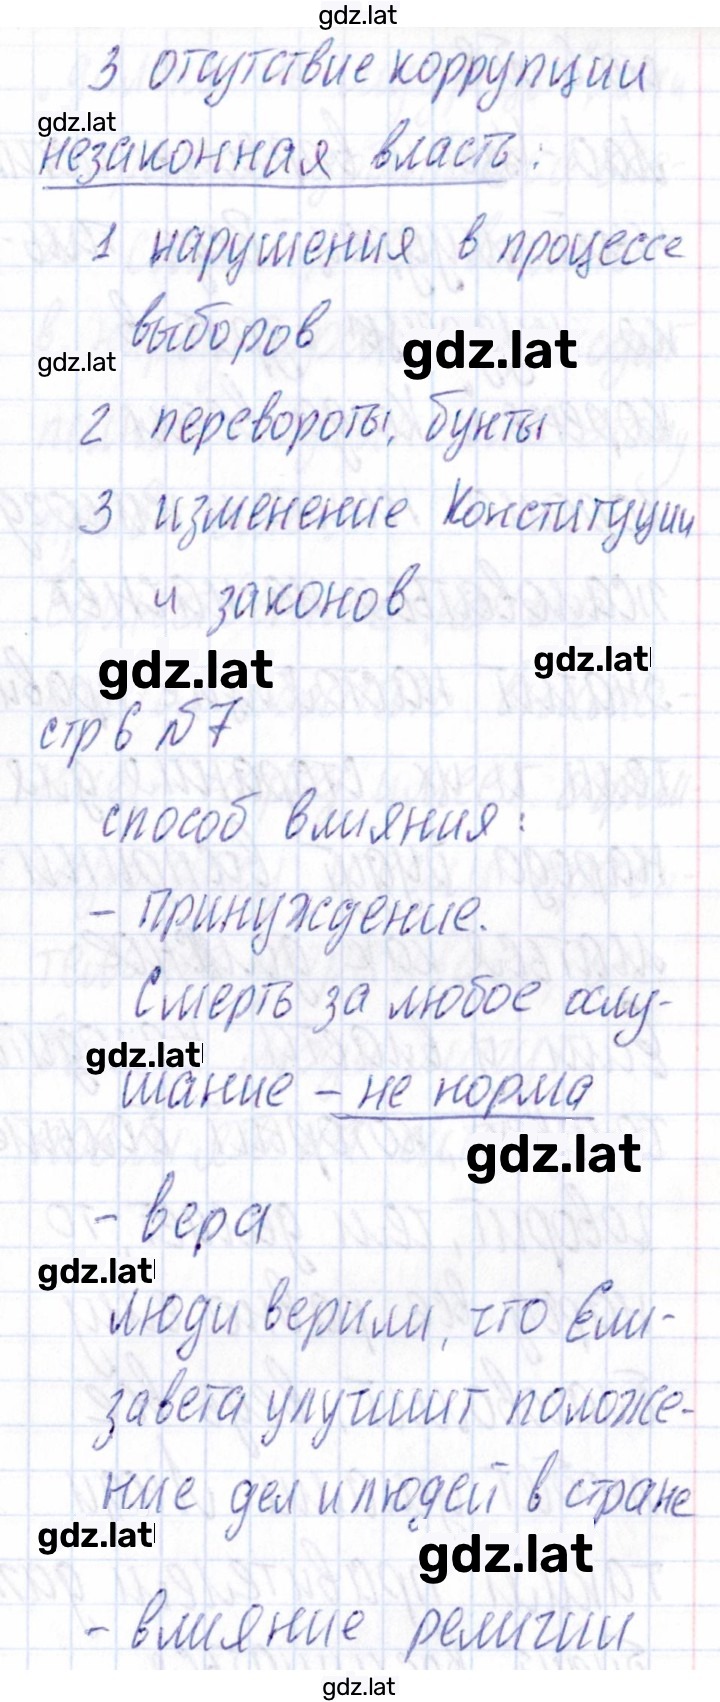 gdz.lat
3 отсутствие коррупции
gdz.lat
незаконная власть:
1 нарушения в процессе
выборов
gdz.lat
gdz.lat
2 перевороты, бунты
3 изменение Конституции
и законов
gdz.lat
gdz.lat
стр 6 №7
способ влияния:
- принуждение.
Смерть за любое ослу-
gdz.lat
шание - не норма
gdz.lat
- вера
gdz.lat
люди верили, что Ели-
завета улучшит положе-
ние дел и людей в стране
gdz.lat
gdz.lat
- влияние религии
gdz.lat